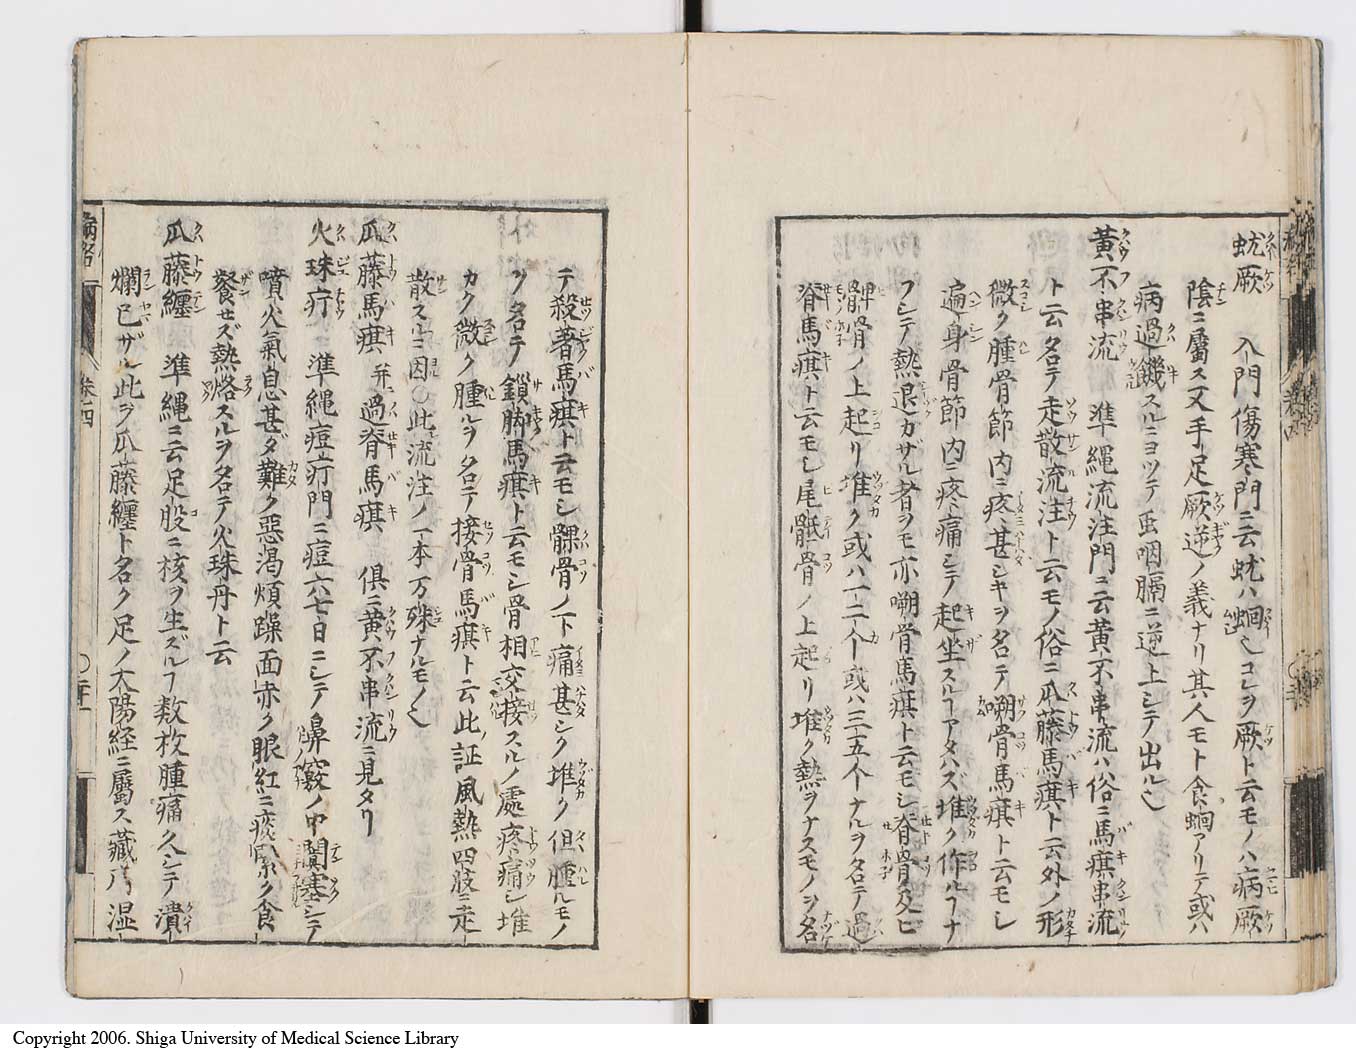 蚘厥 入門傷寒門ニ云蚘ハ蛔也コレヲ厥ト云モノハ病厥
陰ニ屬ス又手足厥逆ノ義ナリ其人モト食蛔アリテ或ハ
病過饑スルニヨツテ虫咽膈ニ逆上シテ出ル也
黄不串流 準縄流注門ニ云黄不串流ハ俗ニ馬䐴串流
ト云名テ走散流注ト云モノ俗ニ瓜藤馬䐴ト云外ノ形
微ク腫骨節内ニ疼甚シキヲ名テ嗍骨馬䐴ト云モシ
遍身骨節内ニ疼痛シテ起坐スルヿアタハズ堆ク作ルヿナ
フシテ熱退カザル者ヲモ亦嗍骨馬䐴ト云モシ脊骨及ヒ
髀骨ノ上起リ堆ク或ハ一二个或ハ三五个ナルヲ名テ過
脊馬䐴ト云モシ尾骶骨ノ上起リ堆ク熱ヲナスモノヲ名
テ殺著馬䐴ト云モシ髁骨ノ下痛甚シク堆ク但腫ルモノ
ヲ名テ鎖脚馬䐴ト云モシ骨相交接スルノ處疼痛シ堆
カク微ク腫ルヲ名テ接骨馬䐴ト云此ノ証風熱四肢ニ走
散スルニ因○此流注ノ一本万殊ナルモノ也
瓜藤馬䐴 并過脊馬䐴 俱ニ黄不串流ニ見タリ
火珠疔 準縄痘疔門ニ痘六七日ニシテ鼻竅ノ中闐塞シテ
噴火氣息甚ダ難ク惡渇煩躁面赤ク眼紅ニ痰紧ク食
餐セズ熱烙スルヲ名テ火珠丹ト云
瓜藤纏 準縄ニ云足股ニ核ヲ生ズルヿ数枚腫痛久シテ潰
爛已ザル此ヲ瓜藤纏ト名ク足ノ太陽経ニ屬ス臓乃湿
卷四